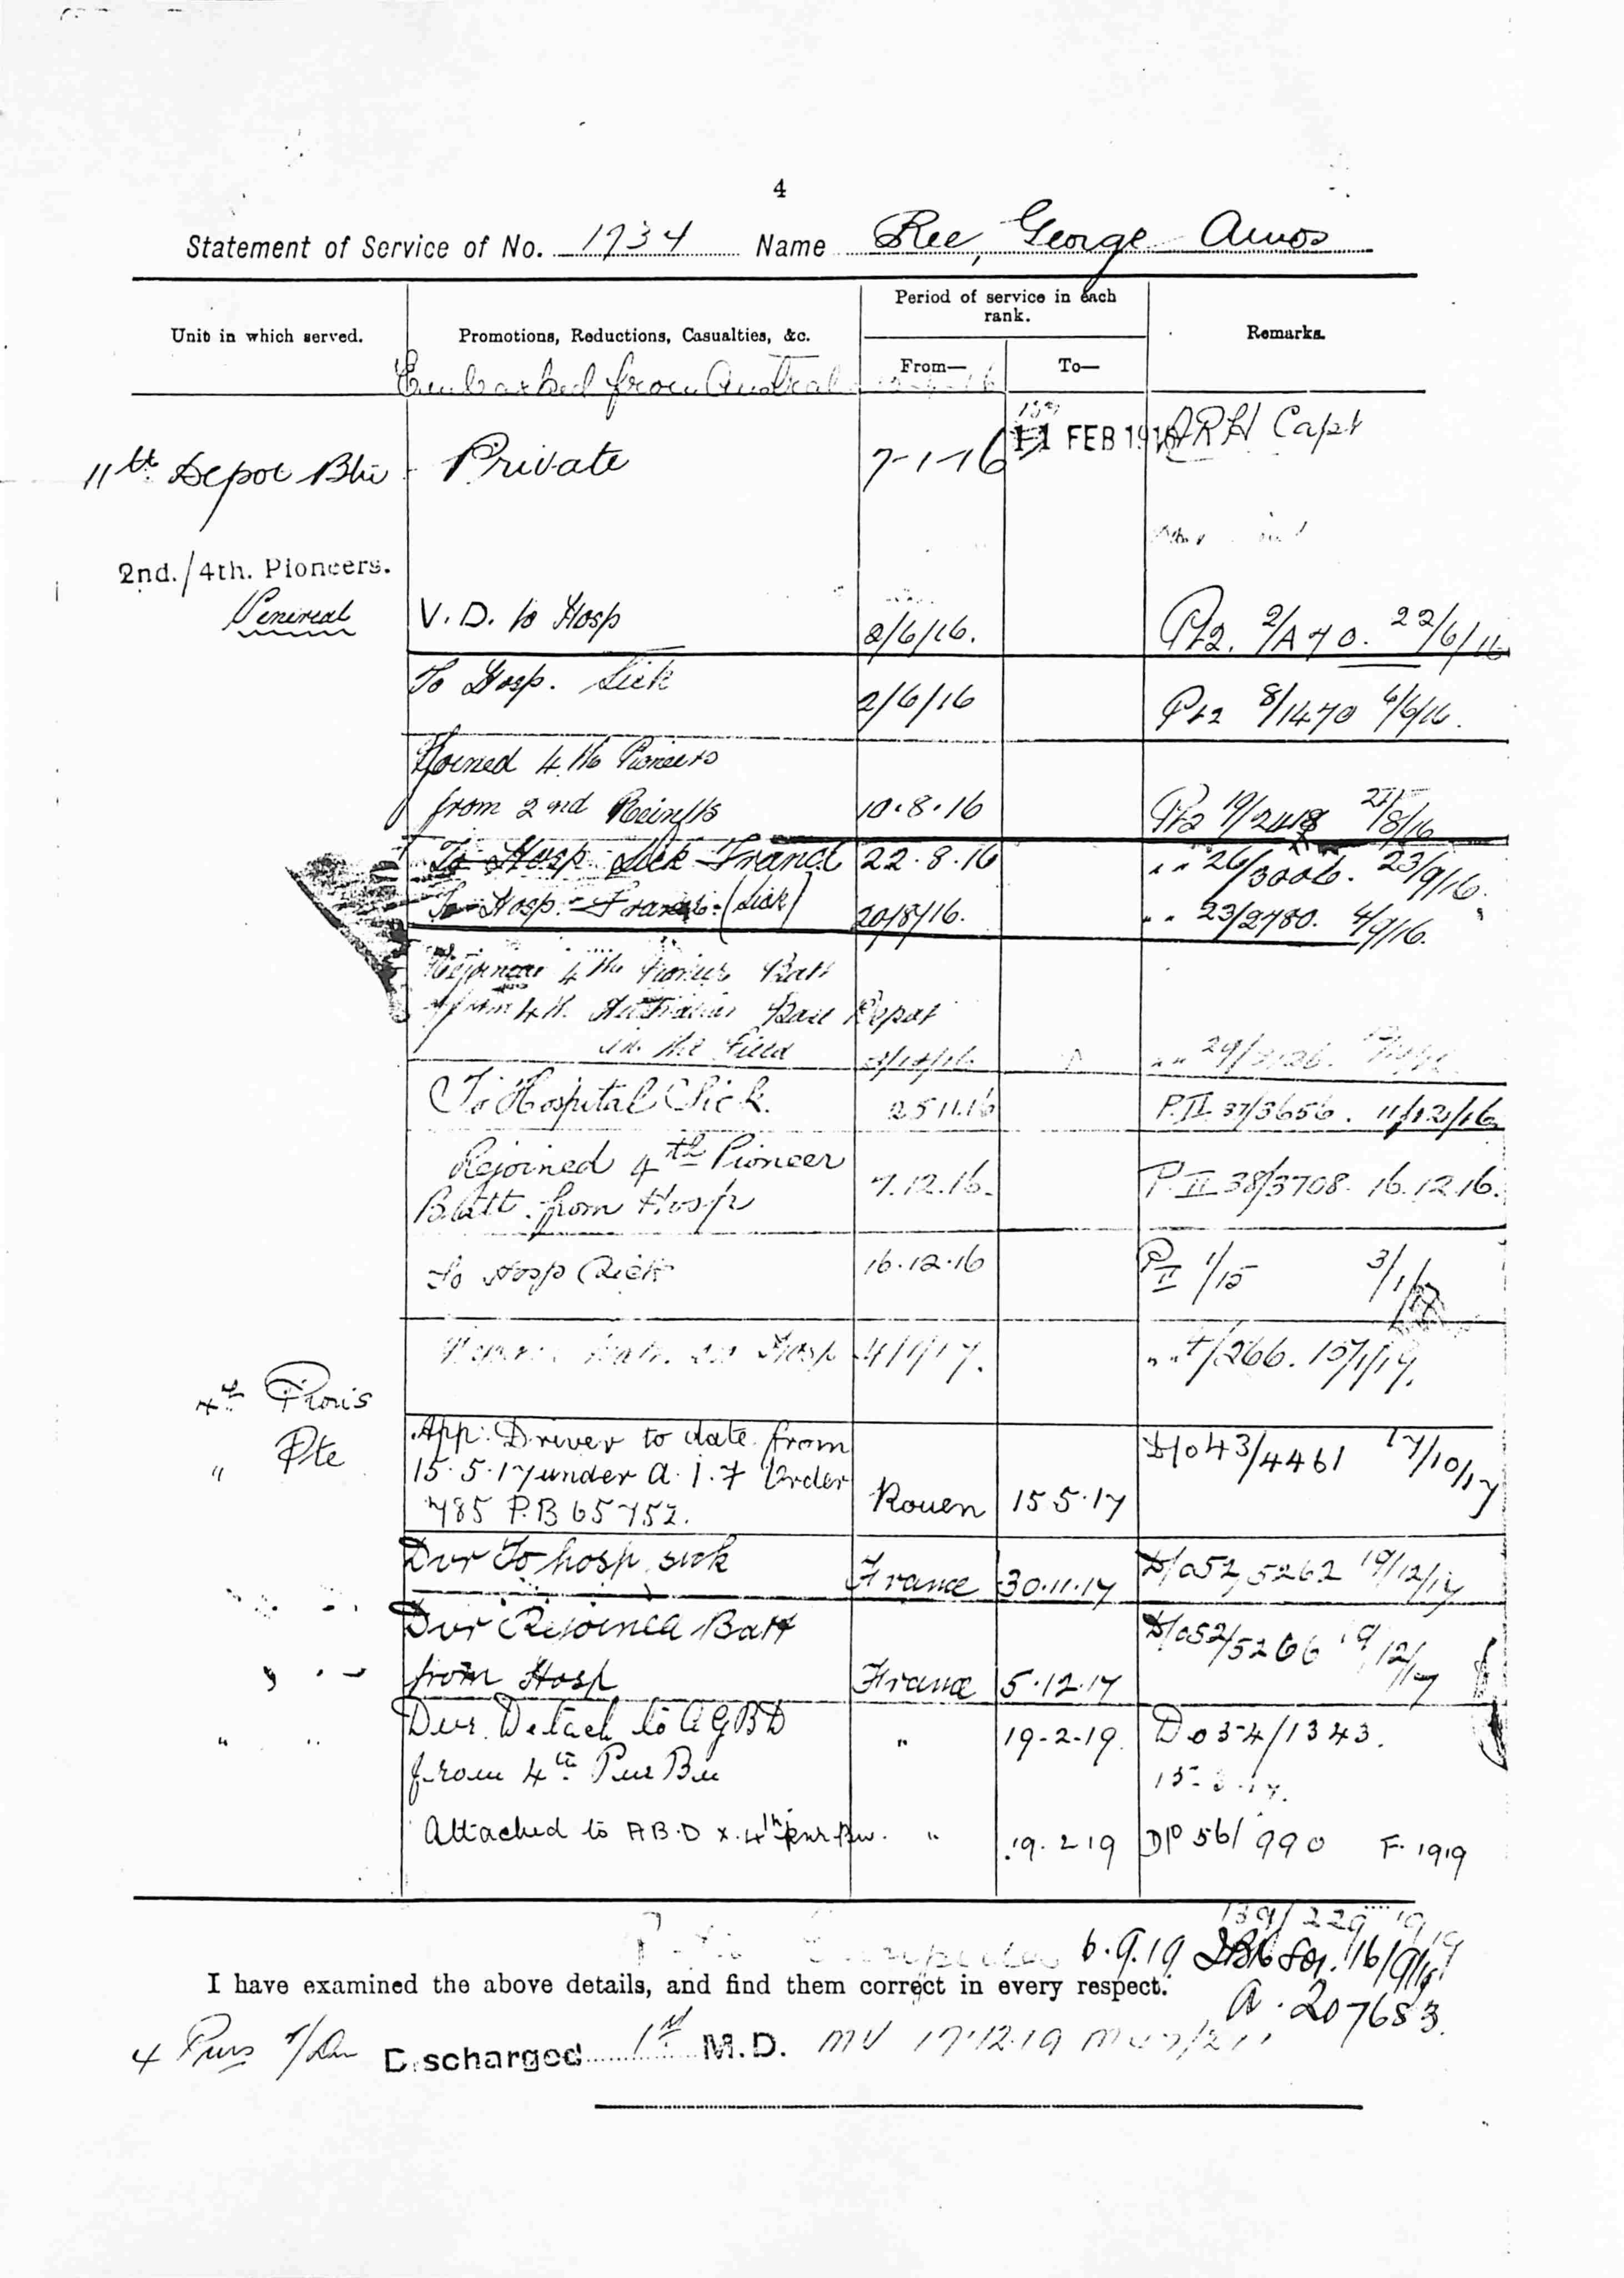 4
Statement of Service of No. 1734 Name Ree, George Amos
Unit in which served.
Promotions, Reductions, Casualties, &c.
Period of service in each
rank.
From—
To—
Remarks.
Embarked from Austral
11th Depot Btn Private 7-1-16 11 FEB 1916 ARH Capt
2nd./4th. Pioneers.
Venereal V.D. to Hosp 2/6/16. Pt2. 2/A70. 22/6/16
To Hosp. Sick 2/6/16 Pt2 8/1470 6/6/16.
Joined 4th Pioneers
from 2nd Reinfts 10.8.16 Pt2 19/2418
To Hosp Sick France 22.8.16 " " 26/3006. 23/9/16.
To Hosp. France. (Sick) 20/8/16. " " 23/2780. 4/9/16.
Rejoined 4th Pioneer Batt
from 4th Australian Base Depot
in the Field
To Hospital Sick. 25 11.16 P.II 37/3656. 11/12/16
Rejoined 4th Pioneer 7.12.16. P.II 38/3708. 16.12.16.
Batt. from Hosp
To Hosp Sick 16.12.16 P II 1/15 3/1/17
Hosp 4/1/17. " " 4/266. 15/1/17.
4th Pions
" Pte
App: Driver to date from D/o 43/4461 17/10/17
15.5.17 under A.I.F Order
785 P.B 65752. Rouen 15 5.17
Dvr To hosp. sick France 30.11.17 D/o52/5262 19/12/17
Dvr Rejoined Batt D/o52/5266 19/12/17
from Hosp France 5.12.17
" " Dvr. Detach to AGBD " 19-2-19. Do 34/1343.
from 4th Pnr Bn
Attached to A B.D x. 4th Pnr Bn. " 19.2 19 D/o 56/990 F. 1919
6.9.19 16/9/19
I have examined the above details, and find them correct in every respect.
A. 207683.
4 Pnrs Discharged 1st M.D. MV 17.12.19